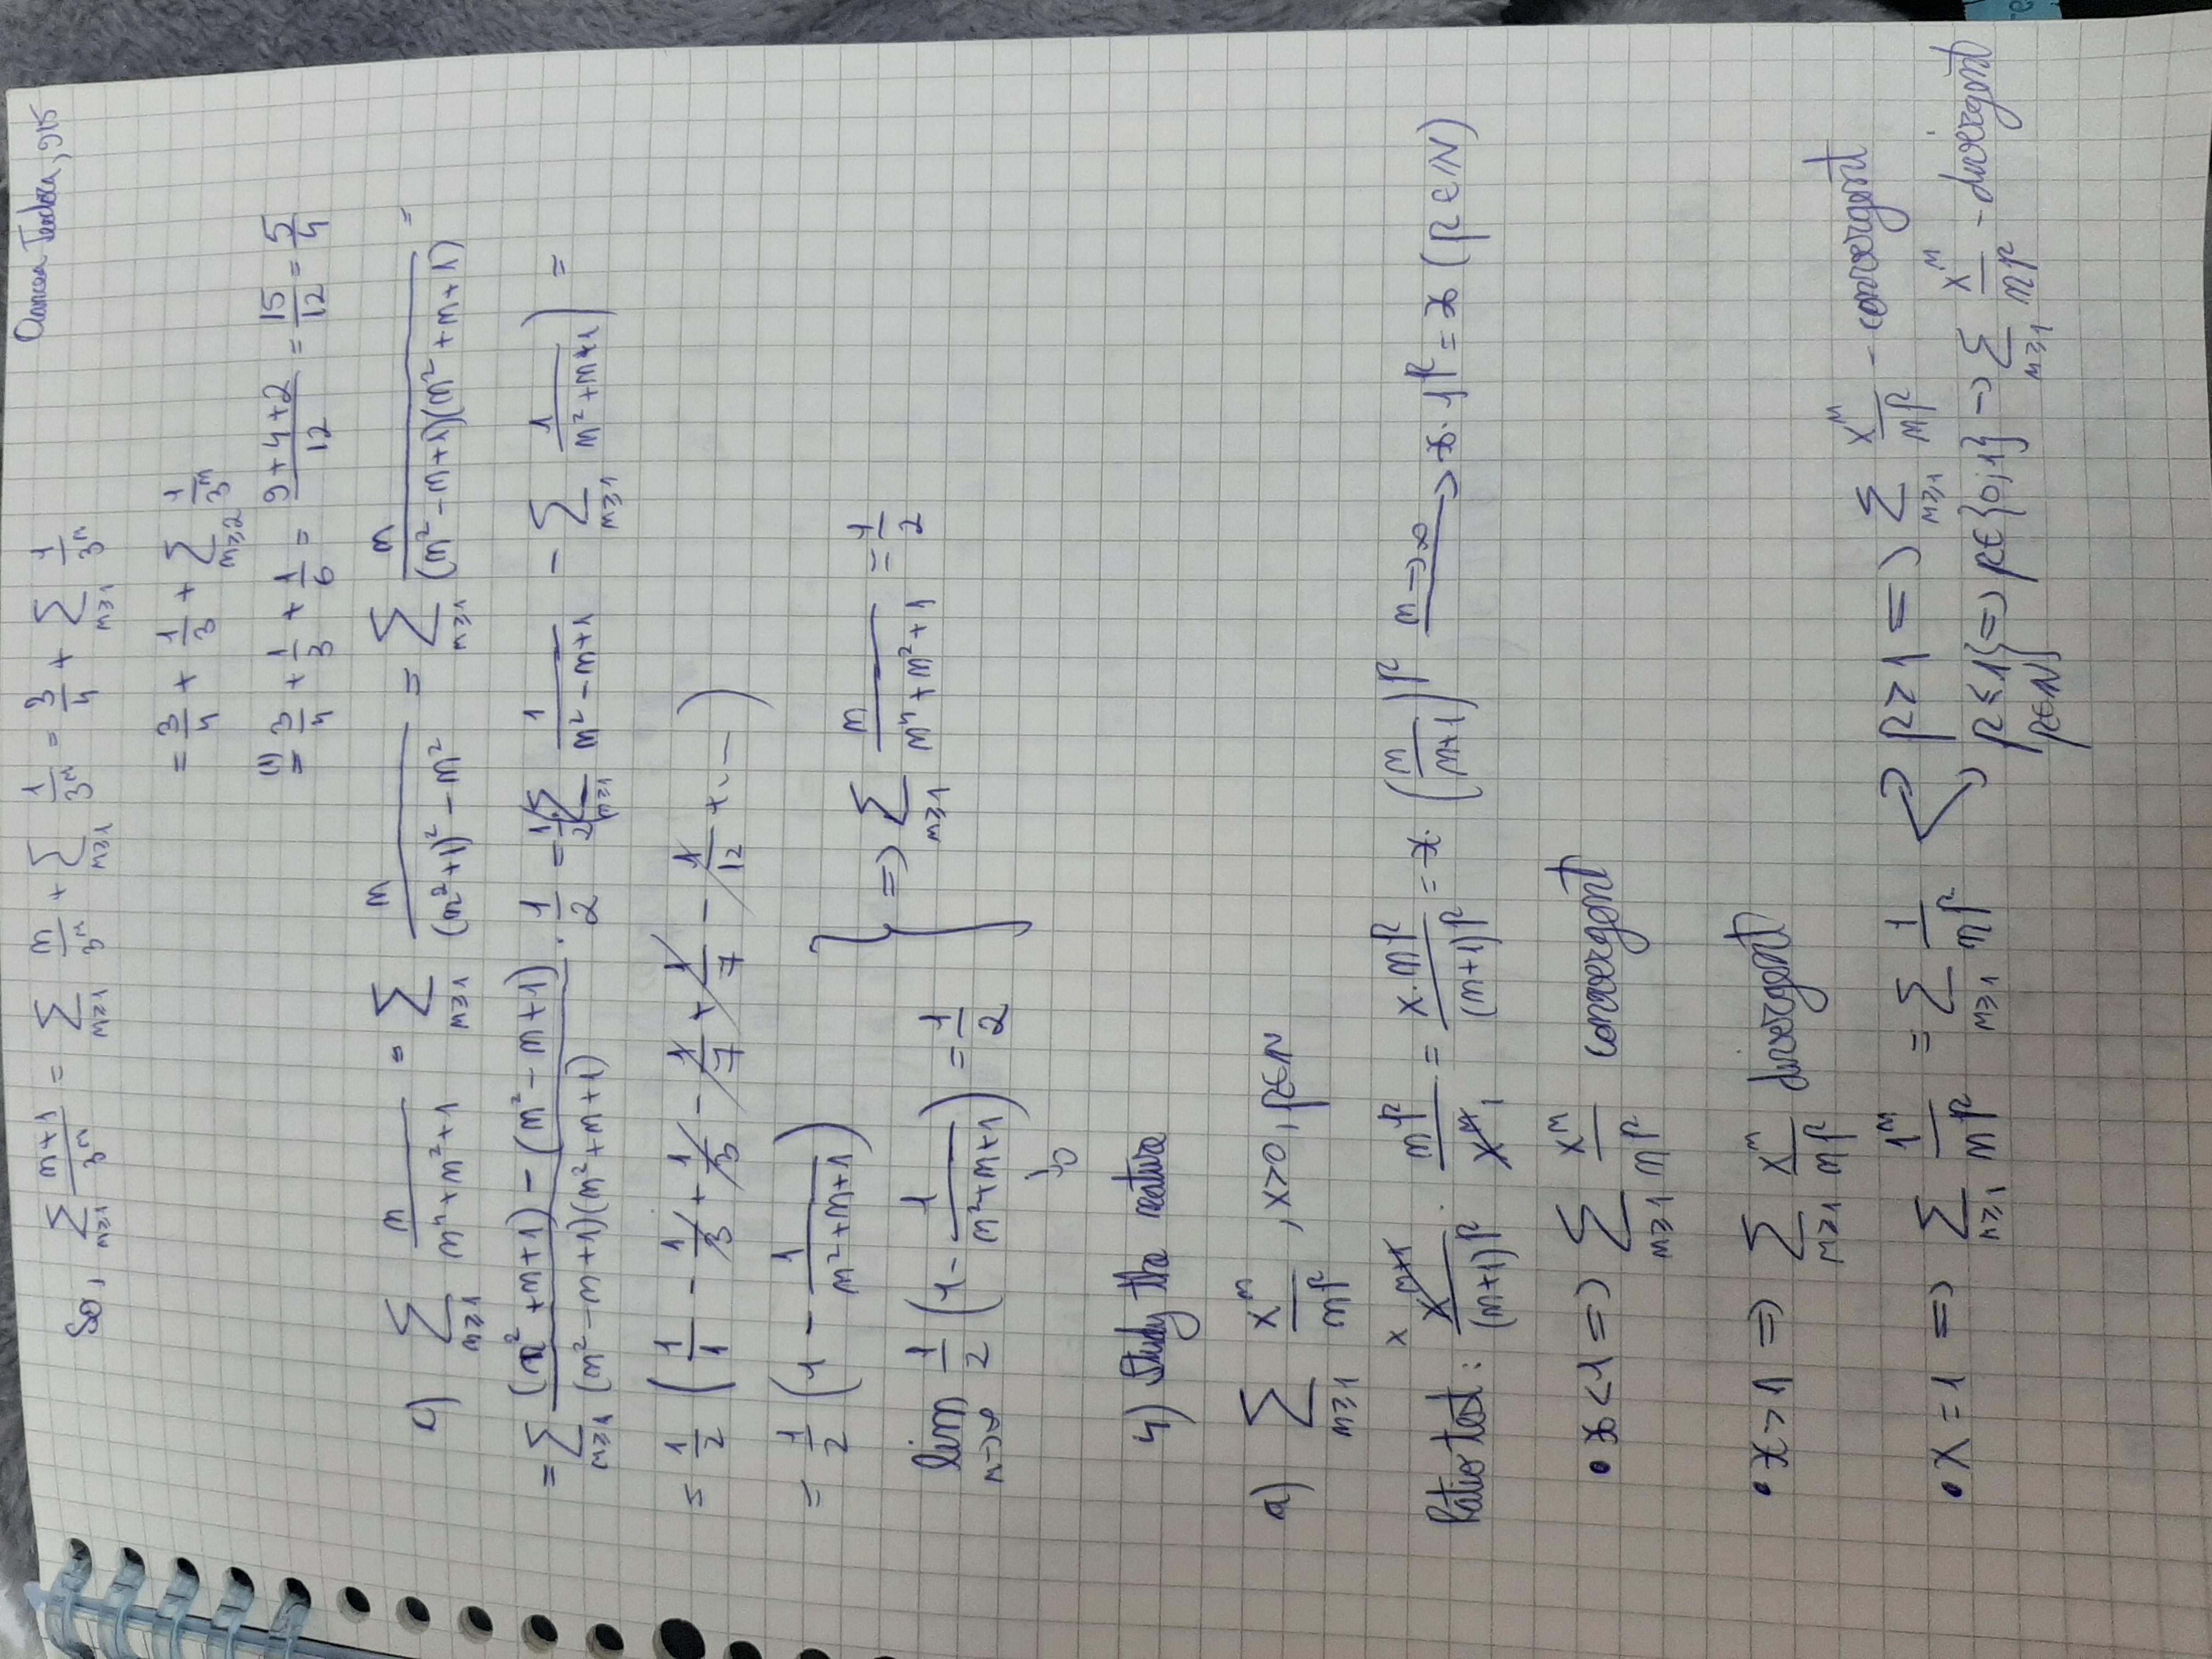 Oancea Teodora, 915
So, ∑_{n≥1} (n+1)/3^n = ∑_{n≥1} n/3^n + ∑_{n≥1} 1/3^n = 3/4 + ∑_{n≥1} 1/3^n
= 3/4 + 1/3 + ∑_{n≥2} 1/3^n
(1)= 3/4 + 1/3 + 1/6 = (9+4+2)/12 = 15/12 = 5/4
c) ∑_{n≥1} n/(n^4+n^2+1) = ∑_{n≥1} n/((n^2+1)^2 - n^2) = ∑_{n≥1} n/((n^2-n+1)(n^2+n+1)) =
= ∑_{n≥1} ((n^2+n+1) - (n^2-n+1))/((n^2-n+1)(n^2+n+1)) · 1/2 = 1/2 (∑_{n≥1} 1/(n^2-n+1) - ∑_{n≥1} 1/(n^2+n+1)) =
= 1/2 (1/1 - 1/3 + 1/3 - 1/7 + 1/7 - 1/12 + ...)
= 1/2 (1 - 1/(n^2+n+1))
lim_{n→∞} 1/2 (1 - 1/(n^2+n+1)) = 1/2 } => ∑_{n≥1} n/(n^4+n^2+1) = 1/2
↓0
4) Study the nature
a) ∑_{n≥1} x^n/n^p, x>0, p∈N
Ratio test: x x^{n+1}/(n+1)^p · n^p/x^n 1 = x·n^p/(n+1)^p = x·(n/(n+1))^p n→∞→ x·1^p = x (p∈N)
• x<1 => ∑_{n≥1} x^n/n^p convergent
• x>1 => ∑_{n≥1} x^n/n^p divergent
• x=1 => ∑_{n≥1} 1^n/n^p = ∑_{n≥1} 1/n^p
p>1 => ∑_{n≥1} x^n/n^p - convergent
p≤1 p∈N } => p∈{0;1} → ∑_{n≥1} x^n/n^p - divergent